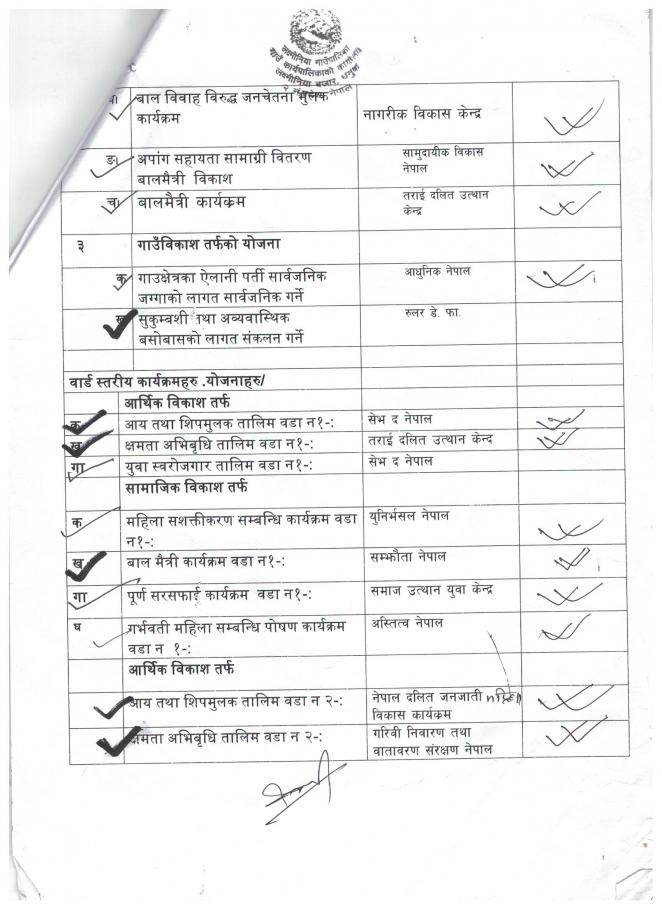 लक्ष्मीनिया गाउँपालिका
गाउँ कार्यपालिकाको कार्यालय
लक्ष्मीनिया बजार, धनुषा
नेपाल
बाल विवाह विरुद्ध जनचेतना मुलक
कार्यक्रम
नागरीक विकास केन्द्र
ङ। अपांग सहायता सामाग्री वितरण
बालमैत्री विकाश
सामुदायीक विकास
नेपाल
च। बालमैत्री कार्यक्रम
तराई दलित उत्थान
केन्द्र
३ गाउँविकाश तर्फको योजना
क गाउक्षेत्रका ऐलानी पर्ती सार्वजनिक
जग्गाको लागत सार्वजनिक गर्ने
आधुनिक नेपाल
ख सुकुम्बशी तथा अव्यवास्थिक
बसोबासको लागत संकलन गर्ने
रुलर डे. फा.
वार्ड स्तरीय कार्यक्रमहरु .योजनाहरु/
आर्थिक विकाश तर्फ
क आय तथा शिपमुलक तालिम वडा न१-: सेभ द नेपाल
ख क्षमता अभिबृधि तालिम वडा न१-: तराई दलित उत्थान केन्द
गा युवा स्वरोजगार तालिम वडा न१-: सेभ द नेपाल
सामाजिक विकाश तर्फ
क महिला सशक्तीकरण सम्बन्धि कार्यक्रम वडा
न१-:
युनिर्भसल नेपाल
ख बाल मैत्री कार्यक्रम वडा न१-: सम्झौता नेपाल
गा पूर्ण सरसफाई कार्यक्रम वडा न१-: समाज उत्थान युवा केन्द्र
घ गर्भवती महिला सम्बन्धि पोषण कार्यक्रम
वडा न १-:
अस्तित्व नेपाल
आर्थिक विकाश तर्फ
आय तथा शिपमुलक तालिम वडा न २-: नेपाल दलित जनजाती
विकास कार्यक्रम
क्षमता अभिबृधि तालिम वडा न २-: गरिवी निवारण तथा
वातावरण संरक्षण नेपाल